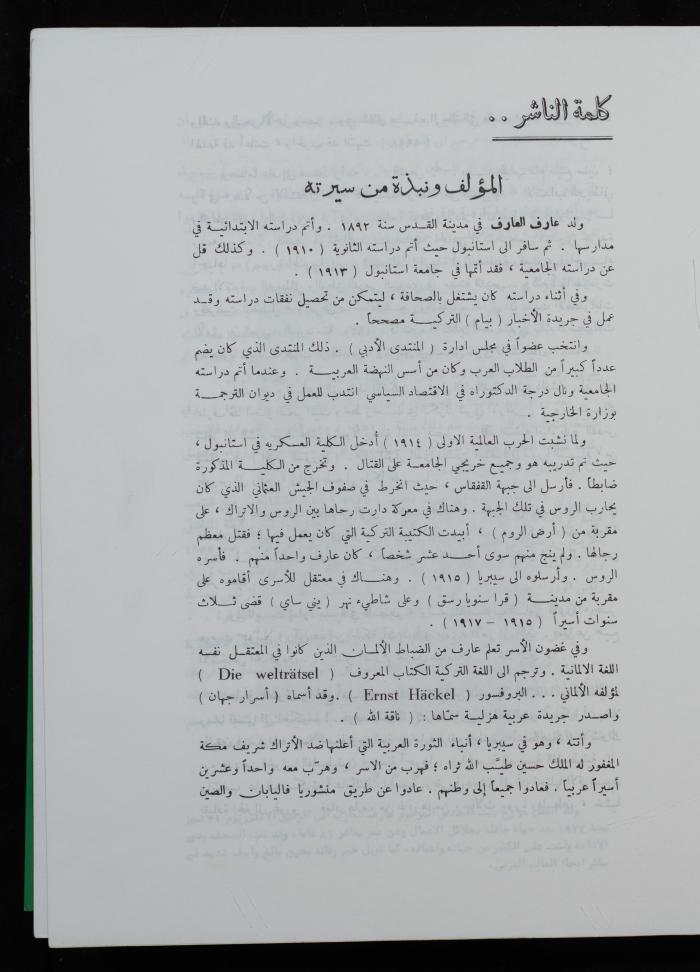 كلمة الناشر ..
المؤلف ونبذة من سيرته
ولد عارف العارف في مدينة القدس سنة ١٨٩٢ . وأتم دراسته الابتدائية في
مدارسها . ثم سافر الى استانبول حيث أتم دراسته الثانوية ( ١٩١٠ ) . وكذلك قل
عن دراسته الجامعية ، فقد أتمها في جامعة استانبول ( ١٩١٣ ) .
وفي أثناء دراسته كان يشتغل بالصحافة ، ليتمكن من تحصيل نفقات دراسته وقد
عمل في جريدة الأخبار ( بيام ) التركية مصححاً .
وانتخب عضواً في مجلس ادارة ( المنتدى الأدبي ) . ذلك المنتدى الذي كان يضم
عدداً كبيراً من الطلاب العرب وكان من أسس النهضة العربية . وعندما أتم دراسته
الجامعية ونال درجة الدكتوراه في الاقتصاد السياسي انتدب للعمل في ديوان الترجمة
بوزارة الخارجية .
ولما نشبت الحرب العالمية الاولى ( ١٩١٤ ) أدخل الكلية العسكريه في استانبول ،
حيث تم تدريبه هو وجميع خريجي الجامعة على القتال . وتخرج من الكلية المذكورة
ضابطاً . فأرسل الى جبهة القفقاس ، حيث انخرط في صفوف الجيش العثماني الذي كان
يحارب الروس في تلك الجبهة . وهناك في معركة دارت رحاها بين الروس والاتراك ، على
مقربة من ( أرض الروم ) ، أبيدت الكتيبة التركية التي كان يعمل فيها ؛ فقتل معظم
رجالها . ولم ينج منهم سوى أحد عشر شخصاً ، كان عارف واحداً منهم . فأسره
الروس . وأرسلوه الى سيبريا ( ١٩١٥ ) . وهناك في معتقل للأسرى أقاموه على
مقربة من مدينة ( قرا سنويارسق ) وعلى شاطيء نهر ( يني ساي ) قضى ثلاث
سنوات أسيراً ( ١٩١٥ – ١٩١٧ ) .
وفي غضون الأسر تعلم عارف من الضباط الألمان الذين كانوا في المعتقل نفسه
اللغة الالمانية . وترجم الى اللغة التركية الكتاب المعروف ( Die welträtsel )
لمؤلفه الألماني . . . البروفسور ( Ernst Häckel ) .وقد أسماه ( أسرار جهان )
واصدر جريدة عربية هزلية سمّاها : ( ناقة الله ) .
وأتته ، وهو في سيبريا ، أنباء الثورة العربية التي أعلنها ضد الأتراك شريف مكة
المغفور له الملك حسين طيّب الله ثراه ؛ فهرب من الاسر ، وهرّب معه واحداً وعشرين
أسيراً عربياً . فعادوا جميعاً إلى وطنهم . عادوا عن طريق منشوريا فاليابان والصين